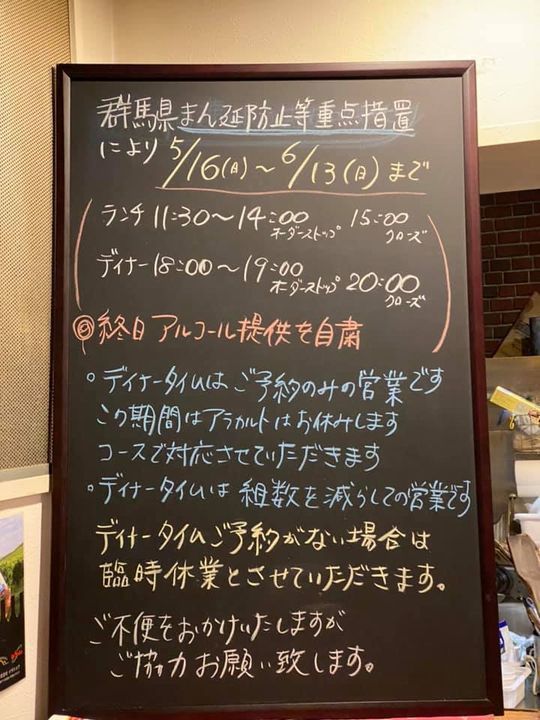 群馬県まん延防止等重点措置
により 5/16(日)～6/13(日)まで
ランチ 11:30～14:00 オーダーストップ 15:00 クローズ
ディナー 18:00～19:00 オーダーストップ 20:00 クローズ
◎終日アルコール提供を自粛
。ディナータイムはご予約のみの営業です
この期間はアラカルトはお休みします
コースで対応させていただきます
。ディナータイムは組数を減らしての営業です
ディナータイムご予約がない場合は
臨時休業とさせていただきます。
ご不便をおかけいたしますが
ご協力お願い致します。